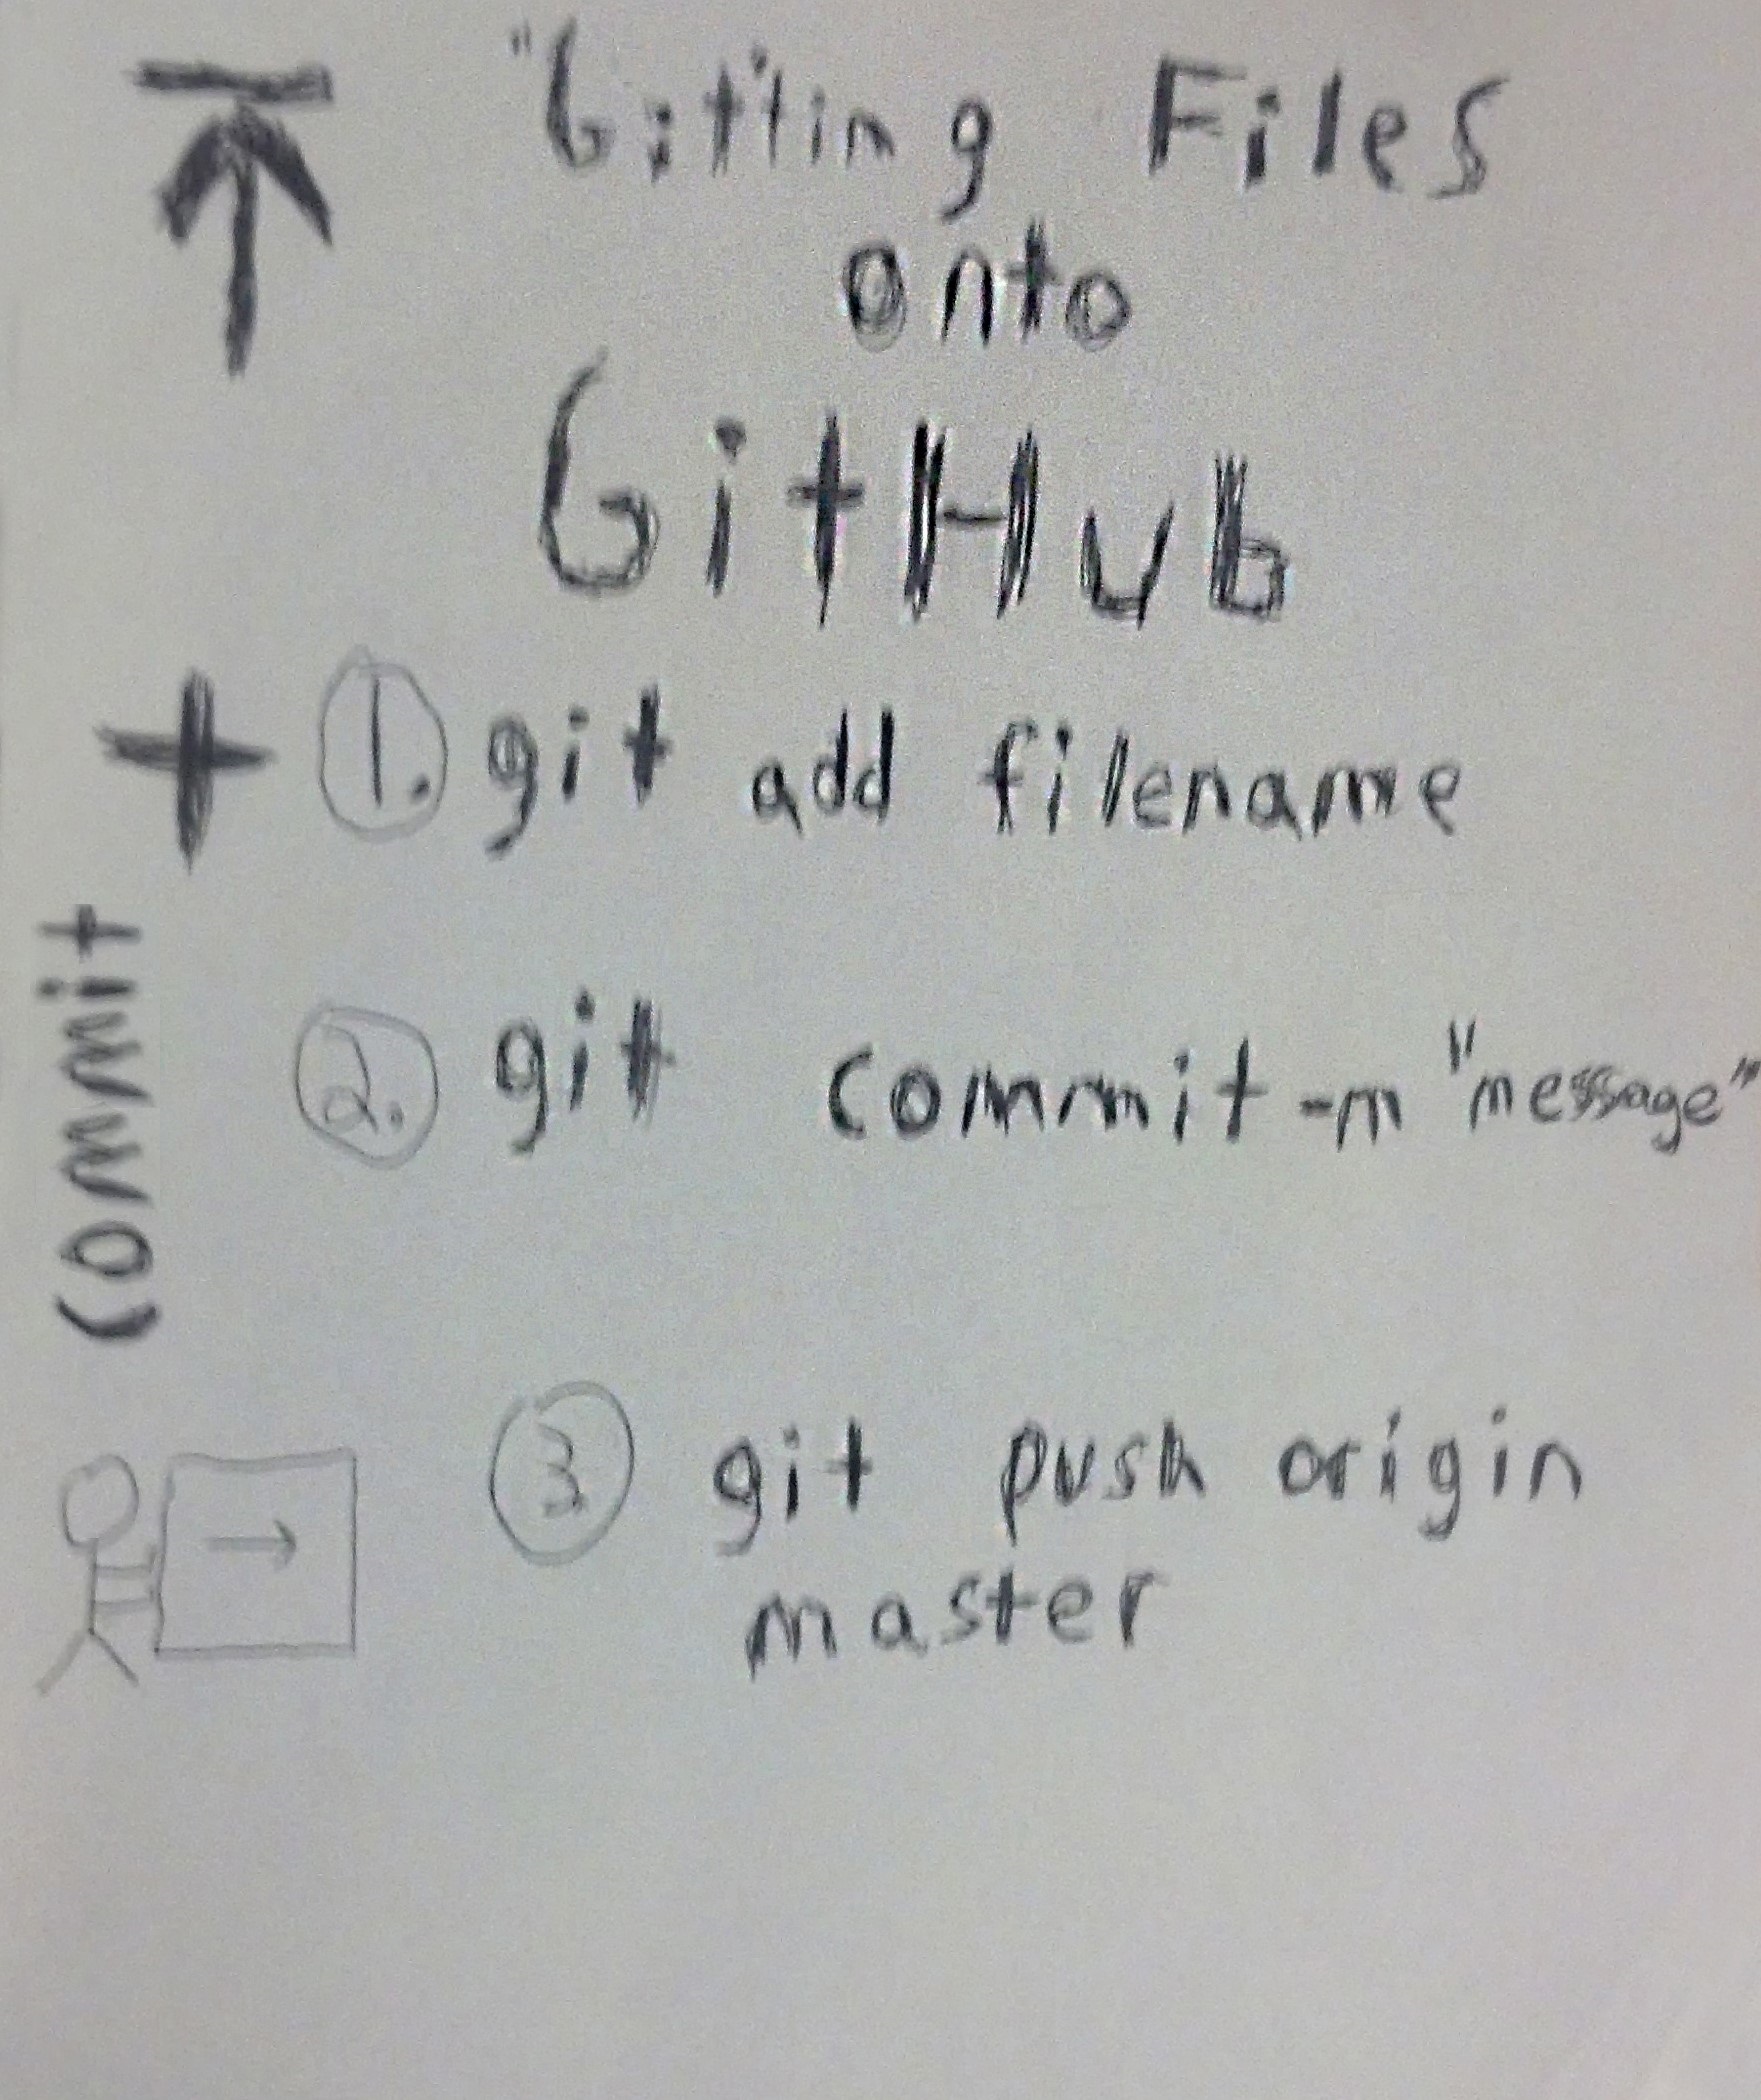 "Gitting Files
onto
GitHub
+ 1. git add filename
commit
2. git commit -m "message"
3. git push origin
master